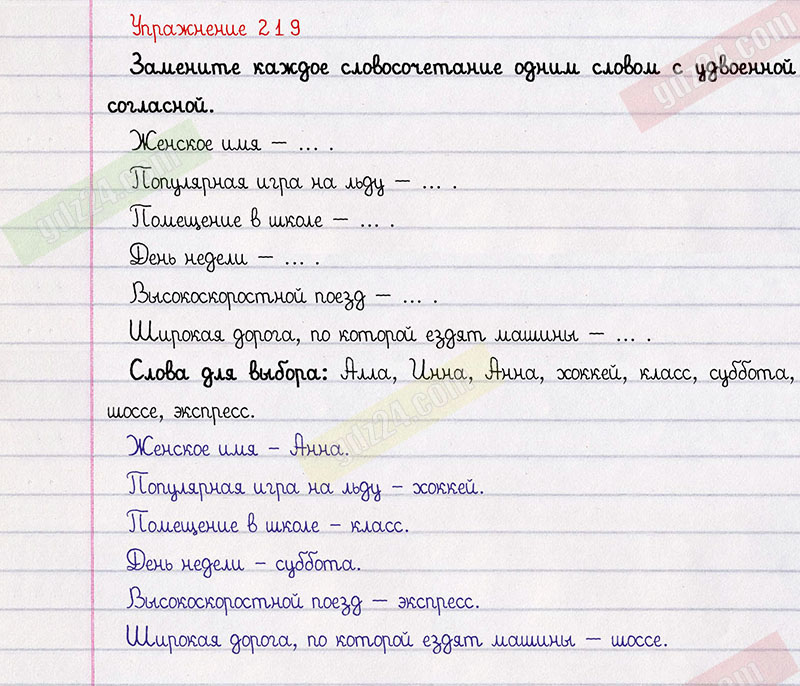 Упражнение 219
Замените каждое словосочетание одним словом с удвоенной
согласной.
Женское имя – ... .
Популярная игра на льду – ... .
Помещение в школе – ... .
День недели – ... .
Высокоскоростной поезд – ... .
Широкая дорога, по которой ездят машины – ... .
Слова для выбора: Алла, Инна, Анна, хоккей, класс, суббота,
шоссе, экспресс.
Женское имя – Анна.
Популярная игра на льду – хоккей.
Помещение в школе – класс.
День недели – суббота.
Высокоскоростной поезд – экспресс.
Широкая дорога, по которой ездят машины – шоссе.
gdz24.com
gdz24.com
gdz24.com